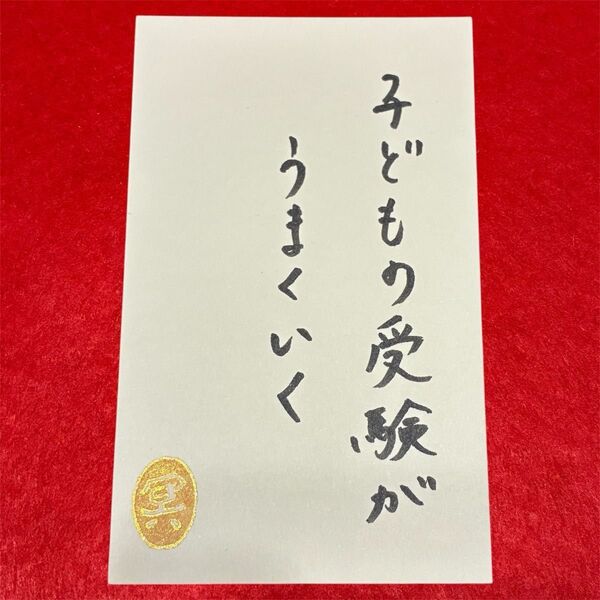 子どもの受験が
うまくいく
冥